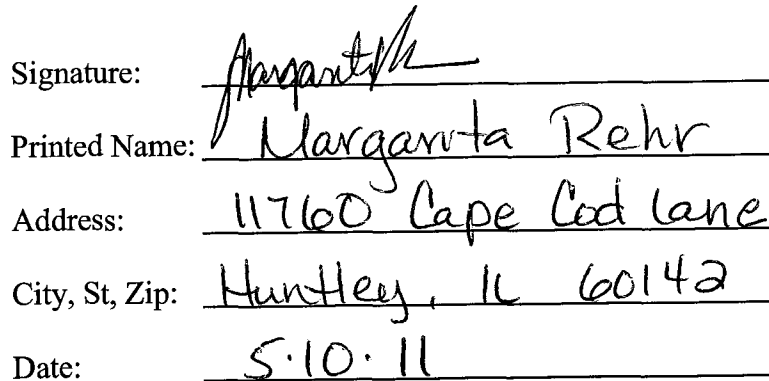 Signature: Margarita R
Printed Name: Margarita Rehr
Address: 11760 Cape Cod lane
City, St, Zip: Huntley, IL 60142
Date: 5.10.11